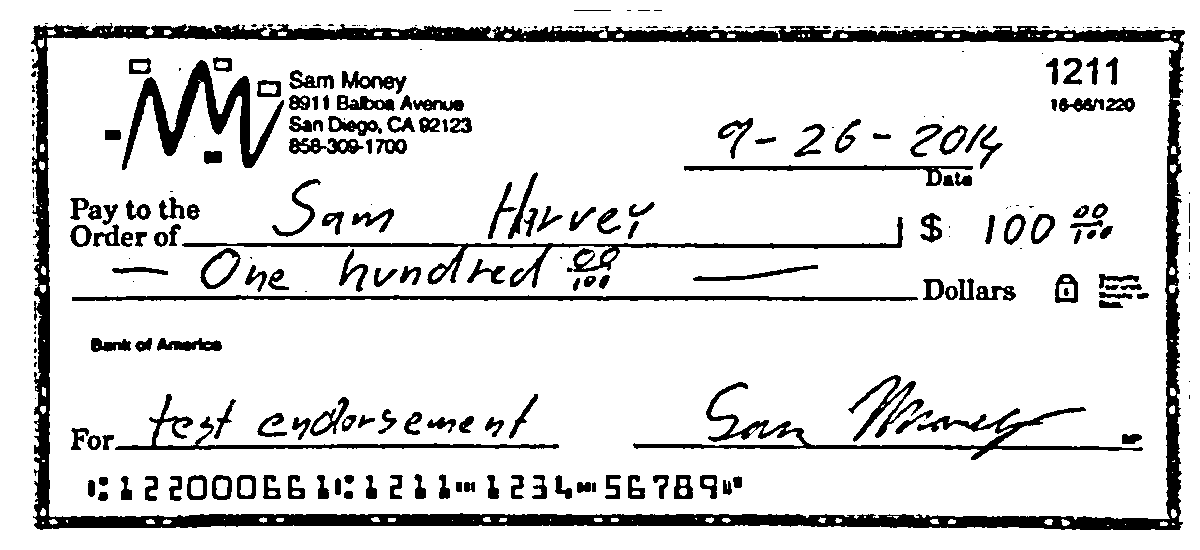 Sam Money
8911 Balboa Avenue
San Diego, CA 92123
858-309-1700
1211
16-66/1220
9-26-2014
Date
Pay to the
Order of Sam Harvey $ 100 00/100
— One hundred 00/100 — Dollars
Bank of America
For test endorsement Sam Money
MP
⑆122000661⑆1211⑉1234⑉56789⑈